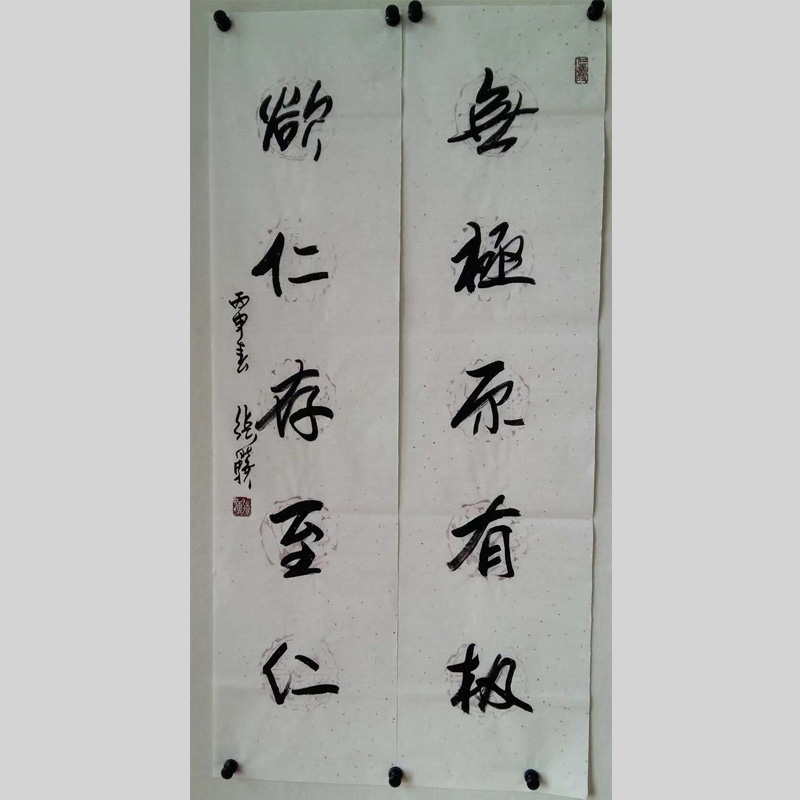 無極原有极
欲仁存至仁
丙申春 张